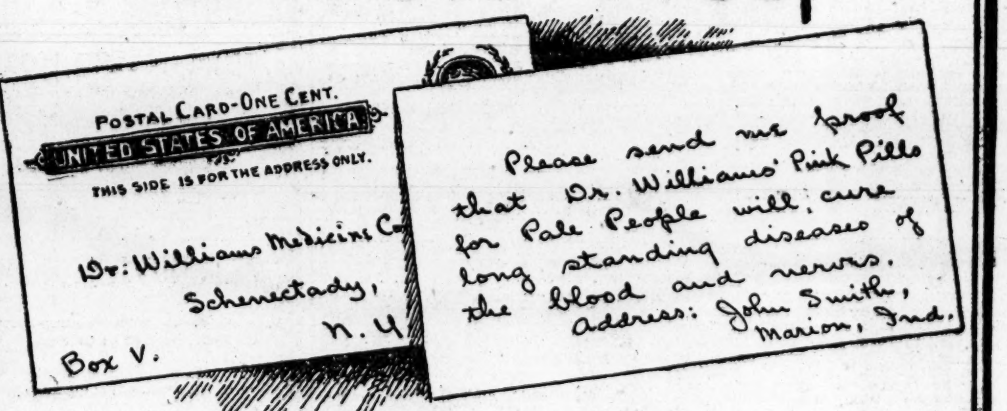 POSTAL CARD-ONE CENT.
UNITED STATES OF AMERICA.
THIS SIDE IS FOR THE ADDRESS ONLY.
Dr. Williams Medicine Co
Schenectady,
N. Y
Box V.
Please send me proof
that Dr. Williams' Pink Pills
for Pale People will cure
long standing diseases of
the blood and nerves.
Address: John Smith,
Marion, Ind.